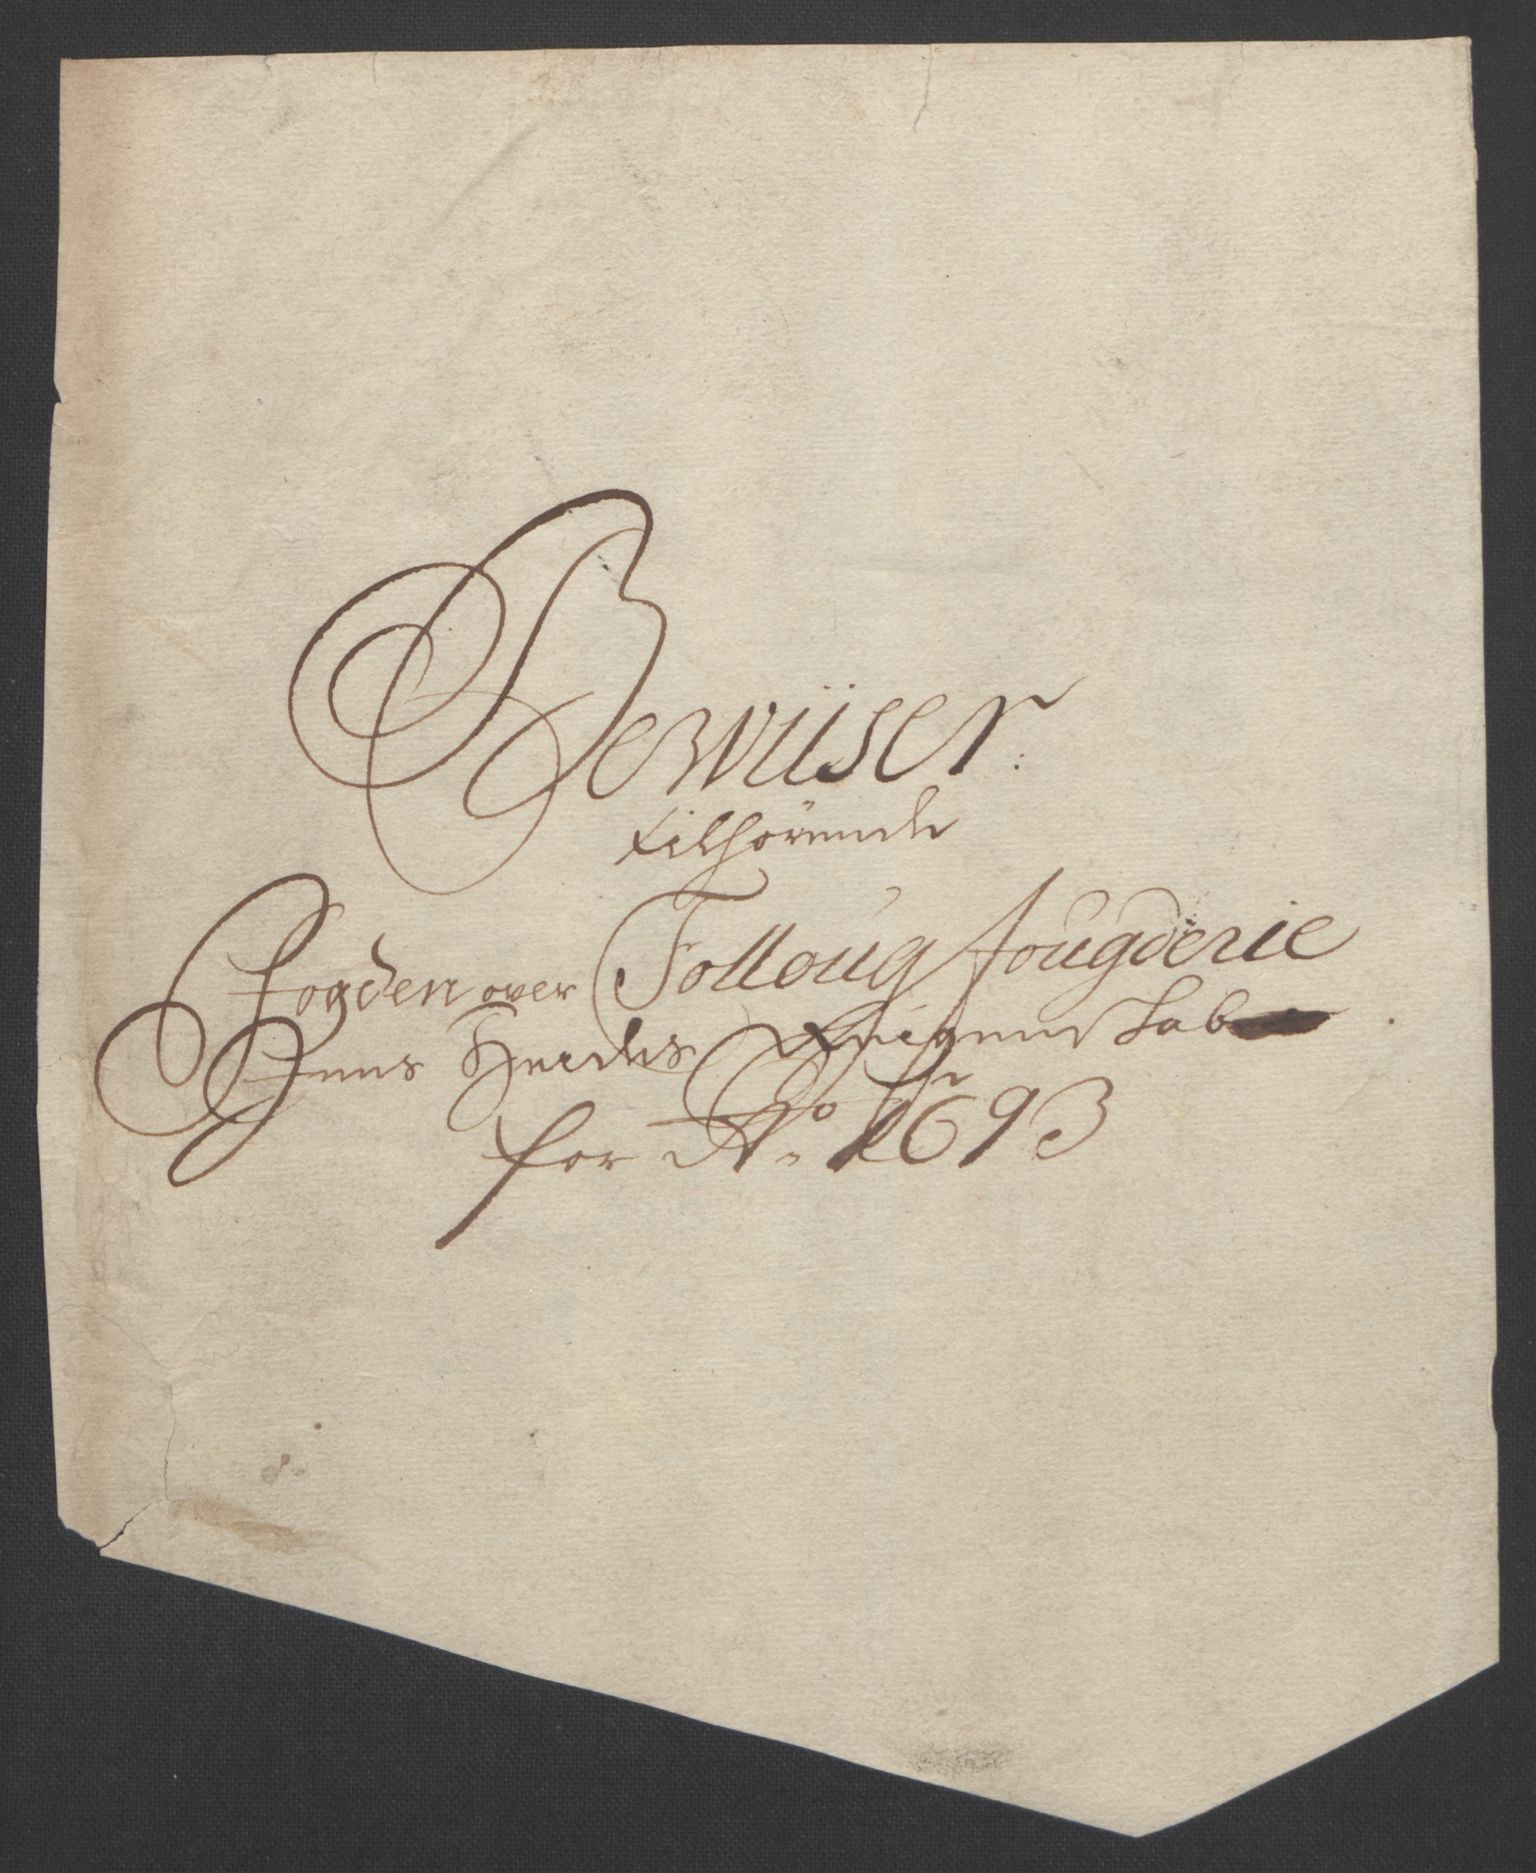 Bewiiser
tilhørende
Fogden over Folloug fougderie
Jens Heides Reigenskab
for Ao. 1693